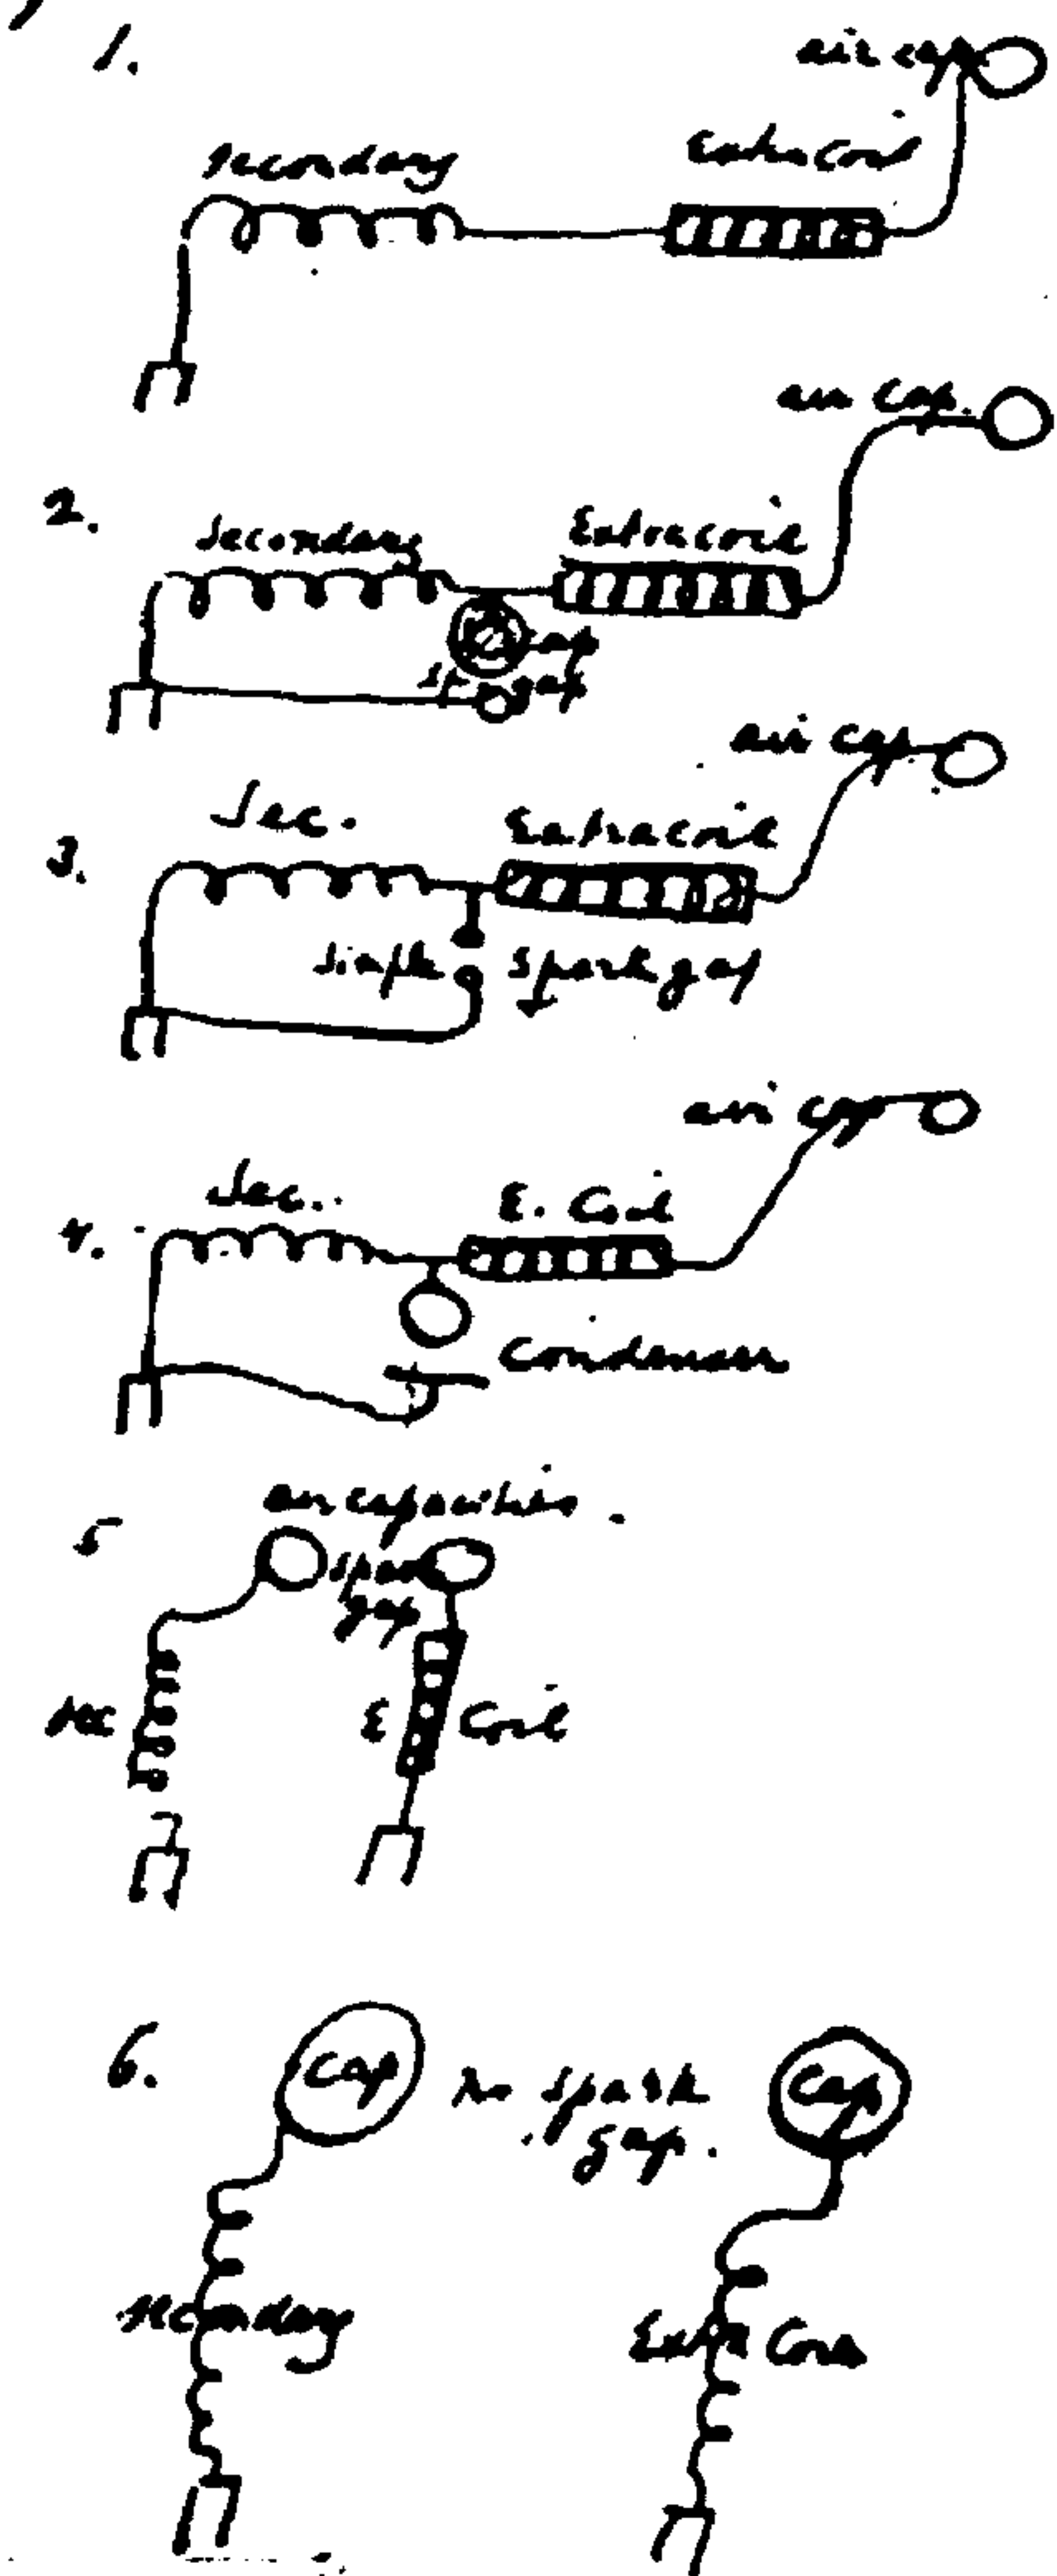 1.
air cap.
secondary
Extra Coil
air cap.
2.
Secondary
Extra coil
cap
sp. gap
air cap
3.
Sec.
Extra coil
Simple Spark gap
air cap
4.
Sec.
E. Coil
Condenser
air capacities.
5
spark
gap
sec
E Coil
6.
Cap
no spark
gap.
Cap
secondary
Extra Coil